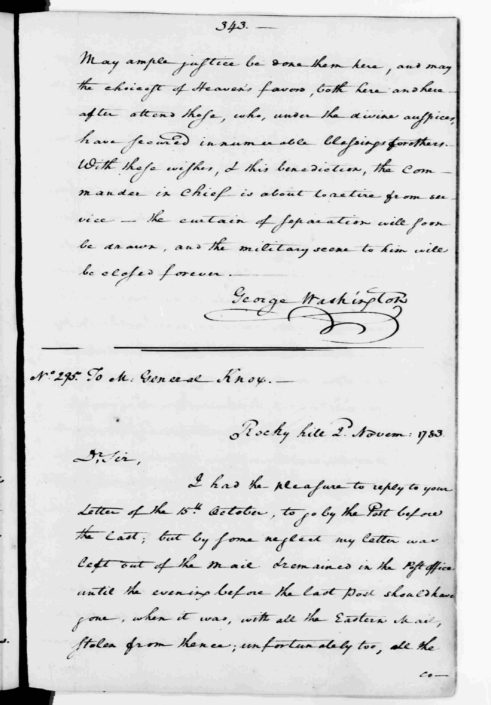 343. —
May ample justice be done them here, and may
the choicest of Heaven's favors, both here and here
after attend those, who, under the divine auspices,
have secured innumerable blessings for others.
With these wishes, & this benediction, the Com —
mander in Chief is about to retire from ser
vice — the curtain of separation will soon
be drawn, and the military scene to him will
be closed forever. —
George Washington
No. 295. To M. General Knox. —
Rocky hill 2d. Novem: 1783
Dr. Sir,
I had the pleasure to reply to your
Letter of the 15th October, to go by the Post before
the last; but by some neglect my letter was
left out of the Mail & remained in the Post office
until the evening before the last Post should have
gone, when it was, with all the Eastern Mail,
stolen from thence; unfortunately too, all the
co —